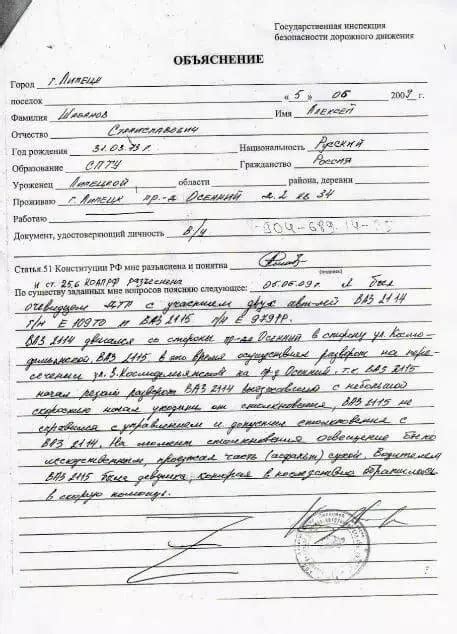 Государственная инспекция
безопасности дорожного движения
ОБЪЯСНЕНИЕ
Город г. Липецк
поселок « 5 » 06 2009 г.
Фамилия Шабанов Имя Алексей
Отчество Станиславович
Год рождения 31.03.73г. Национальность Русский
Образование СПТУ Гражданство Россия
Уроженец Липецкой области района, деревни
Проживаю г. Липецк пр-д Осенний д. 2 кв 34
Работаю
Документ, удостоверяющий личность В/у
Статья 51 Конституции РФ мне разъяснена и понятна
и ст. 25.6 КОАПРФ разъяснена
По существу заданных мне вопросов поясняю следующее: 05.06.09г. Я был
очевидцем ДТП с участием двух авт-лей ВАЗ 2114
Г/Н Е 109ТО и ВАЗ 2115 Г/Н Е
ВАЗ 2114 двигался со стороны пр-да Осенний в сторону ул. Космо-
демьянской. ВАЗ 2115 в это время осуществлял разворот на пере-
сечении ул. З. Космодемьянской и пр-д Осенний, т.к. ВАЗ 2115
начал резкий разворот ВАЗ 2114 с небольшой
скоростью начал уходить от столкновения, ВАЗ 2115 не
справился с управлением и допустил столкновение с
ВАЗ 2114. На момент столкновения освещение было
искусственным, проезжая часть (асфальт) сухой. Водителем
ВАЗ 2115 была девушка, которая в последствие обратилась
в скорую помощь.